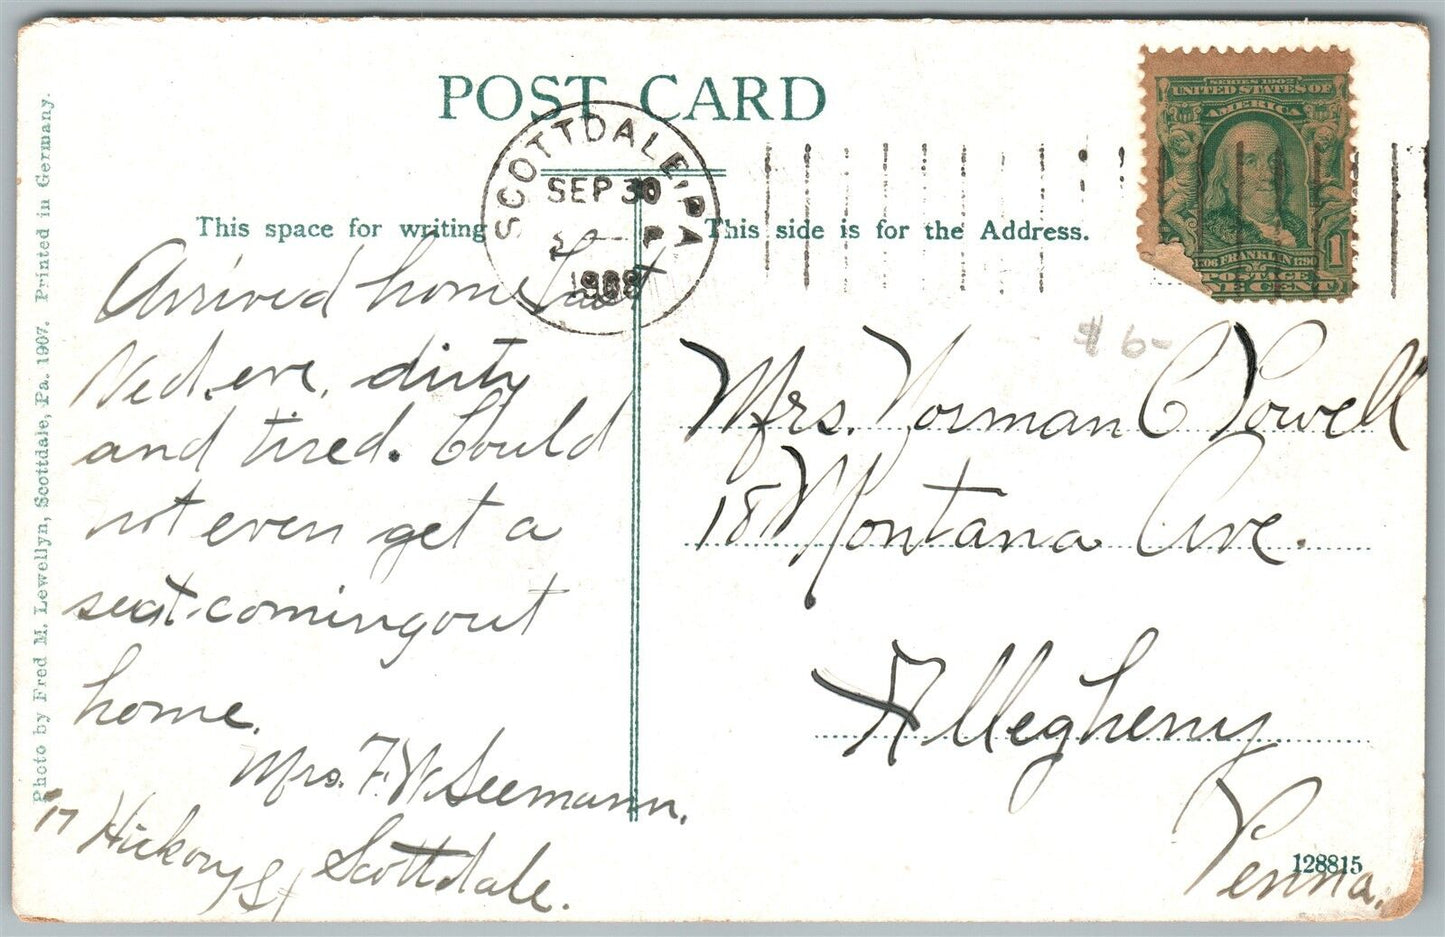 POST CARD
SCOTTDALE, PA
SEP 30
1908
SERIES 1902
UNITED STATES OF
AMERICA
1706 FRANKLIN 1790
POSTAGE
ONE CENT
1
This space for writing
This side is for the Address.
Arrived home last
Wed. eve, dirty
and tired. Could
not even get a
seat coming out
home.
Mrs. F. W. Seemann.
17 Hickory St Scottdale.
$6-
Mrs. Norman C Powell
18 Montana Ave.
Allegheny
Penna.
128815
Photo by Fred M. Lewellyn, Scottdale, Pa. 1907. Printed in Germany.